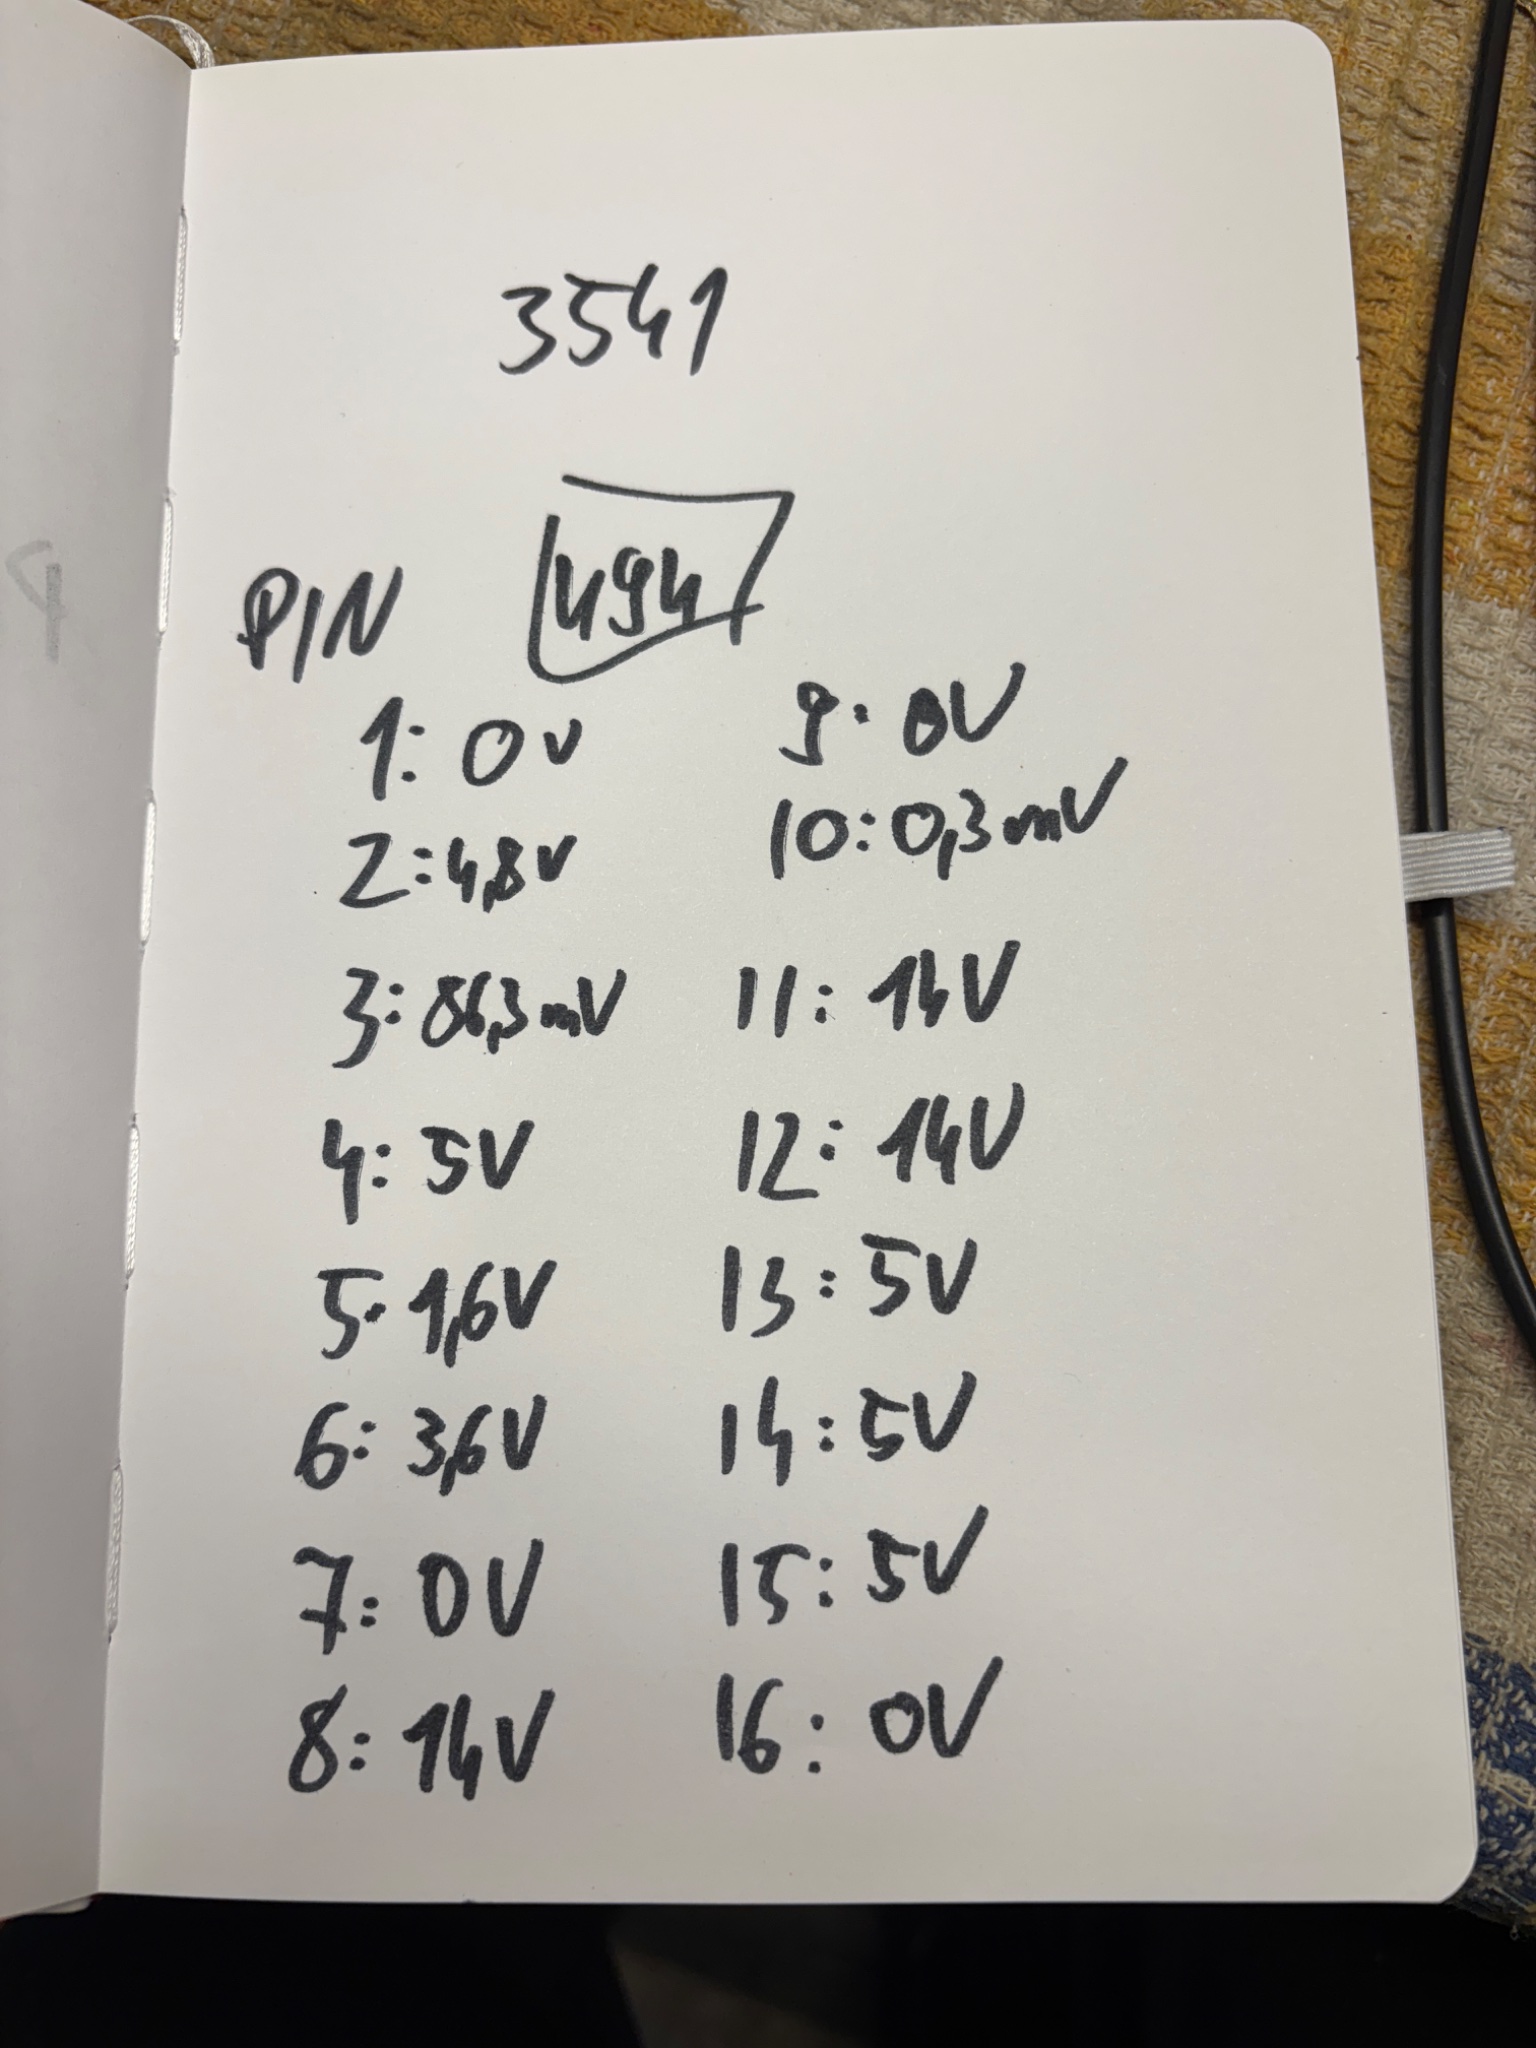 3541
494
PIN
1: 0v
2: 4,8v
3: 86,3mV
4: 5V
5: 1,6V
6: 3,6V
7: 0V
8: 14V
9: 0V
10: 0,3mV
11: 14V
12: 14V
13: 5V
14: 5V
15: 5V
16: 0V